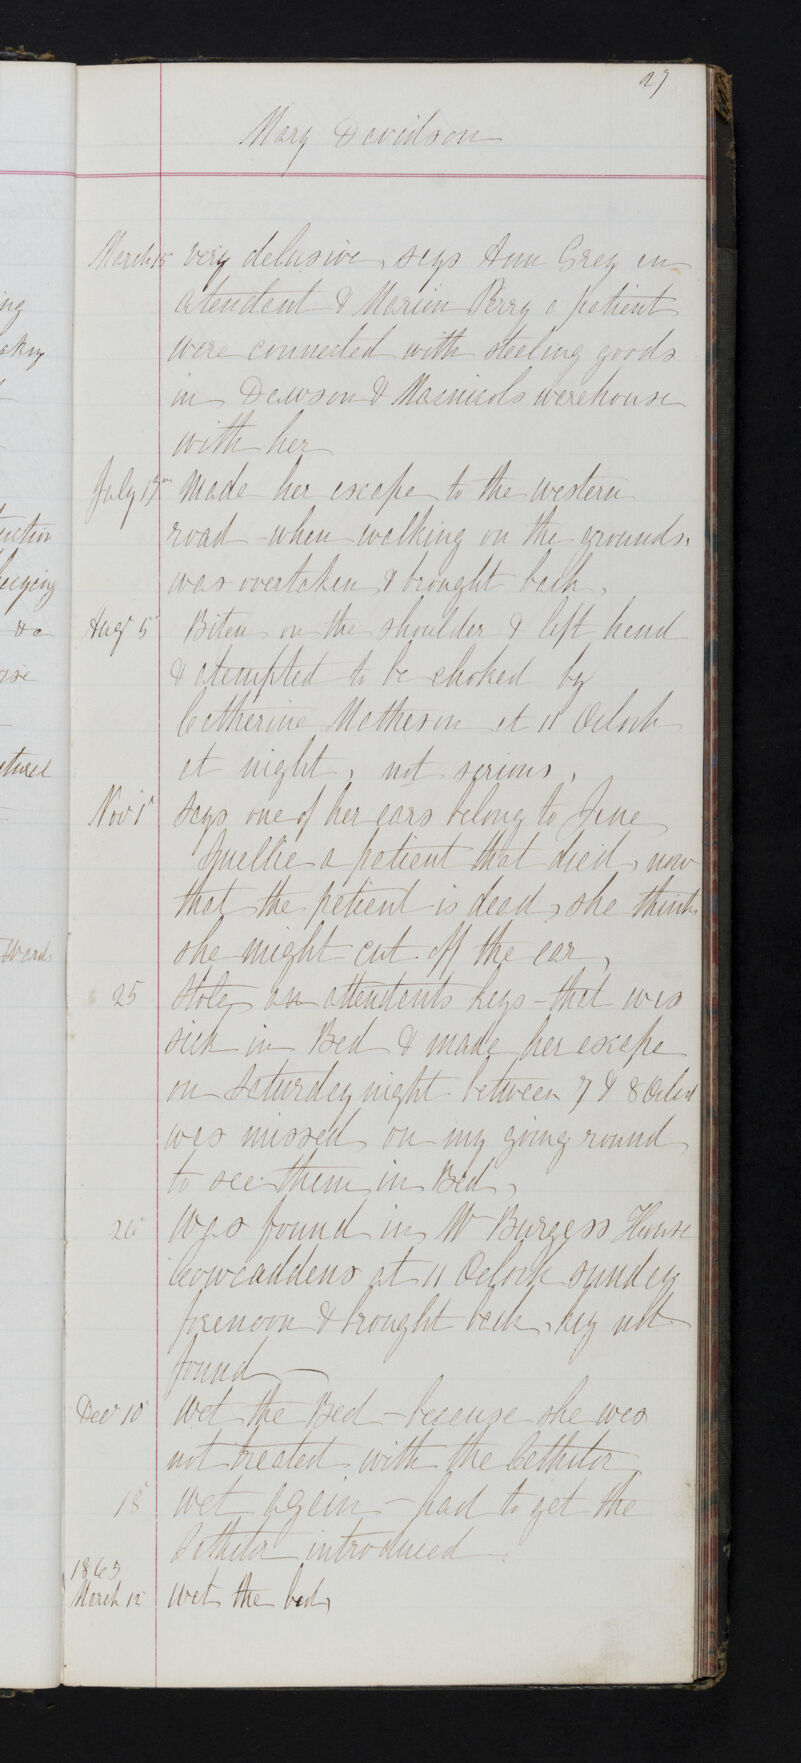 27
Mary Davidson
March 15 very delusive, says Ann Grey an
atendant & Marion Perry a patient
were connected with steeling goods
in Dawson & Macnicols warehouse
with her
July 17 made her escape to the western
road when walking on the grounds.
was overtaken & brought back,
Augt 5 Biten on the shoulder & left hand
& atempted to be choked by
Catherine Matheson at 11 Oclock
at night, not serious,
Novr 1 says one of her ears belong to Jane
a patient that died, now
that the patient is dead, she thinks
she might cut off the ear,
25 Stole an attendents keys - that was
sick in Bed & made her escape
on Saturday night between 7 & 8 Oclock
was missed on my going round
to see them in Bed,
26 Was found in Mr Burgess House
Cowcaddens at 11 Oclock sunday
forenoon & brought back, key not
found
Decr 10 Wet the Bed - because she was
not treated with the Cathiter
18 Wet again - had to get the
Cathiter introduced
1865
March 12 Wet the bed,
ing
uction
&c
ward